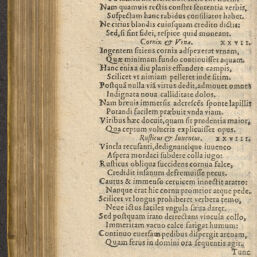 Nam quamuis rectis constet sententia verbis,
Suspectam hanc rabidus confiliator habet.
Ne citius blandis cuiusquam credito dictis:
Sed, si sint fidei, respice quid moneant.
Cornix & Vrna. XXVII.
Ingentem sitiens cornix adspexerat vrnam,
Quæ minimam fundo continuisset aquam.
Hanc enixa diu planis effundere campis,
Scilicet vt nimiam pelleret inde sitim.
Postquã nulla viã virtus dedit, admouet omnes
Indignata noua calliditate dolos.
Nam breuis immersis adcrescēs sponte lapillis
Potandi facilem præbuit vnda viam.
Viribus hæc docuit, quam sit prudentia maior,
Qua cœptum volucris explicuisset opus.
Rusticus & Iuuencus. XXVIII.
Vincla recusanti, dedignantique iuuenco
Aspera mordaci subdere colla iugo:
Rusticus obliqua succidens cornua falce,
Credidit insanum defremuisse pecus.
Cautus & immenso ceruicem innectit aratro:
Nanque erat hic cornu promtior atque pede.
Scilicet vt longus prohiberet verbera temo,
Neue ictus faciles vngula sæua daret.
Sed postquam irato detrectans vincula collo,
Immeritam vacuo calce fatigat humum:
Continuo euersam pedibus dispergit arenam,
Quam ferus in domini ora sequentis agit.
Tunc